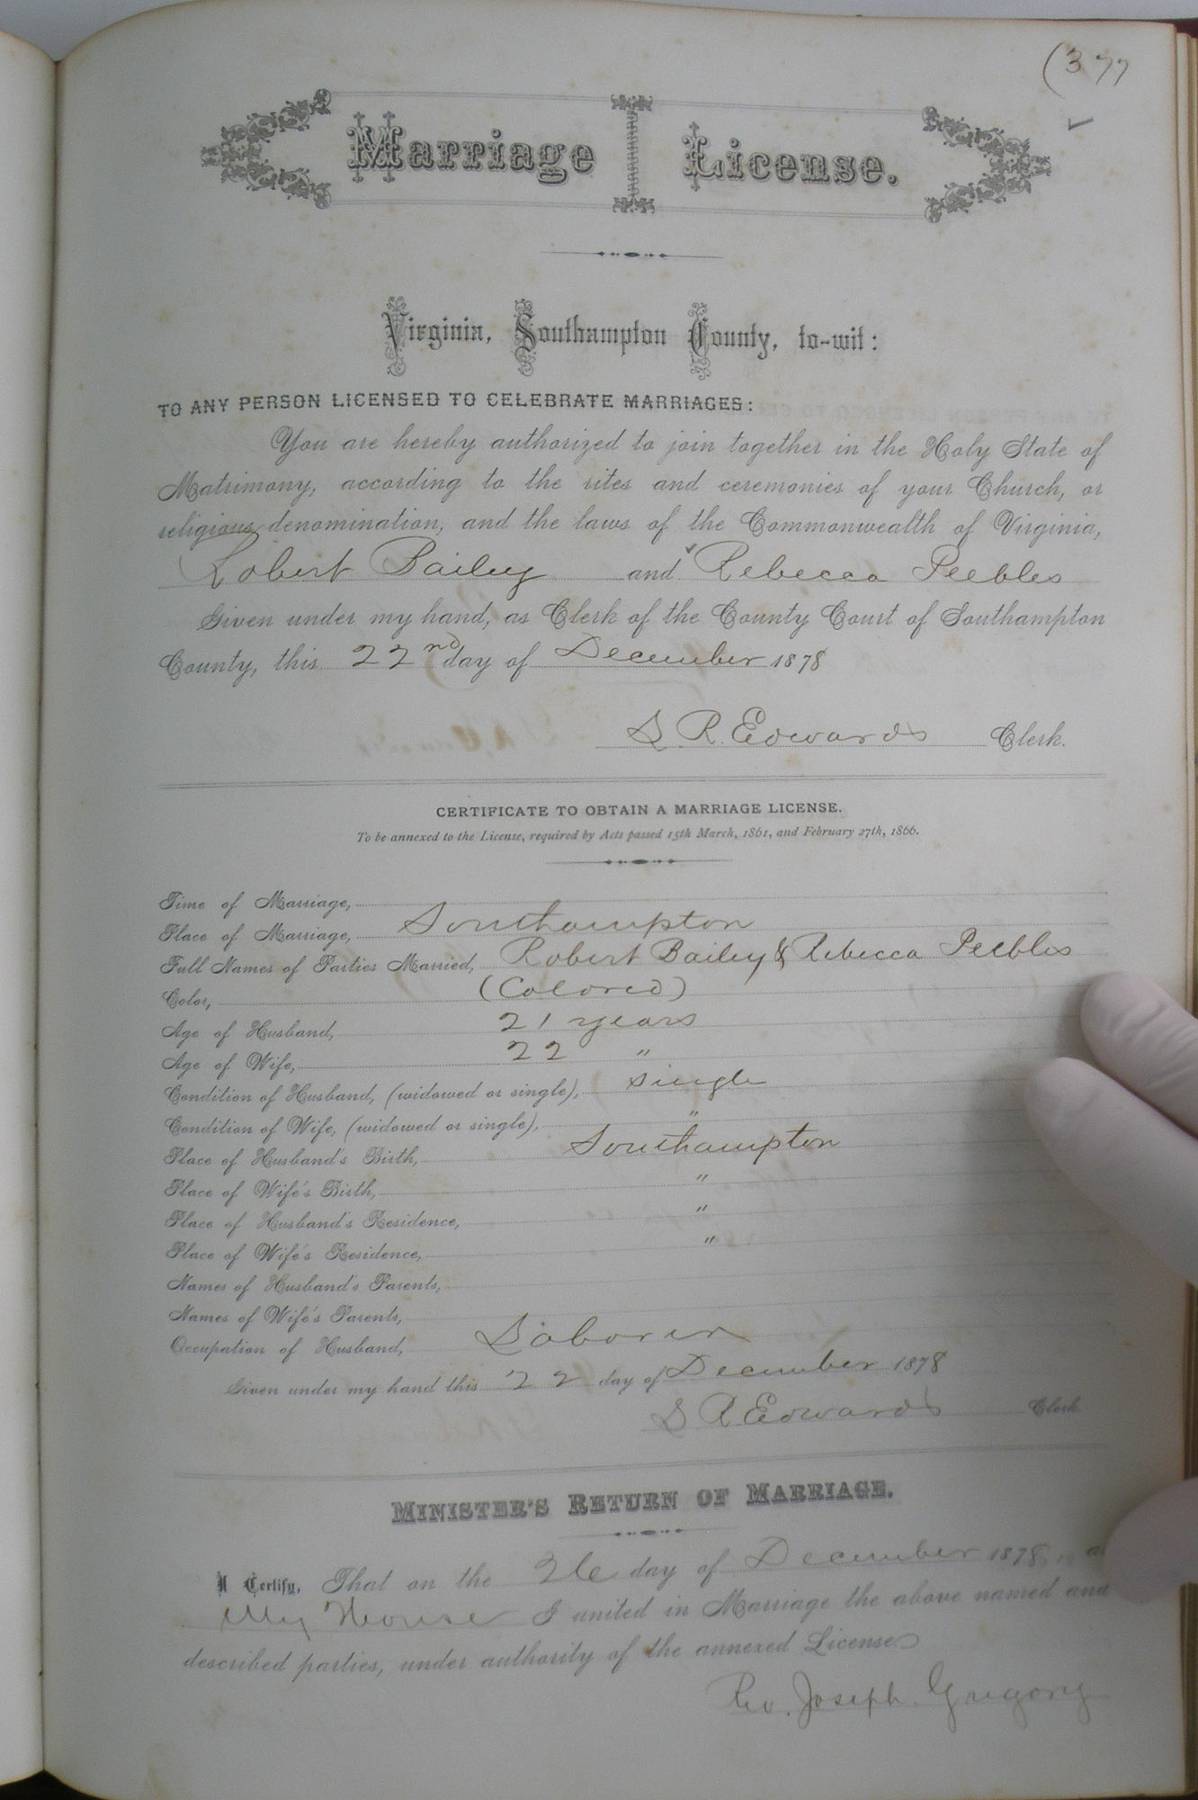 (377
Marriage License.
Virginia, Southampton County, to-wit:
TO ANY PERSON LICENSED TO CELEBRATE MARRIAGES:
You are hereby authorized to join together in the Holy State of
Matrimony, according to the rites and ceremonies of your Church, or
religious denomination, and the laws of the Commonwealth of Virginia,
Robert Bailey and Rebecca Peebles
Given under my hand, as Clerk of the County Court of Southampton
County, this 22nd day of December 1878
S. R. Edwards Clerk.
CERTIFICATE TO OBTAIN A MARRIAGE LICENSE.
To be annexed to the License, required by Acts passed 15th March, 1861, and February 27th, 1866.
Time of Marriage,
Place of Marriage, Southampton
Full Names of Parties Married, Robert Bailey & Rebecca Peebles
Color, (Colored)
Age of Husband, 21 years
Age of Wife, 22 "
Condition of Husband, (widowed or single), single
Condition of Wife, (widowed or single), "
Place of Husband's Birth, Southampton
Place of Wife's Birth, "
Place of Husband's Residence, "
Place of Wife's Residence, "
Names of Husband's Parents,
Names of Wife's Parents,
Occupation of Husband, Laborer
Given under my hand this 22 day of December 1878
S R Edwards Clerk
MINISTER'S RETURN OF MARRIAGE.
I Certify, That on the 26 day of December 1878, at
My House I united in Marriage the above named and
described parties, under authority of the annexed License
Rev. Joseph Gregory